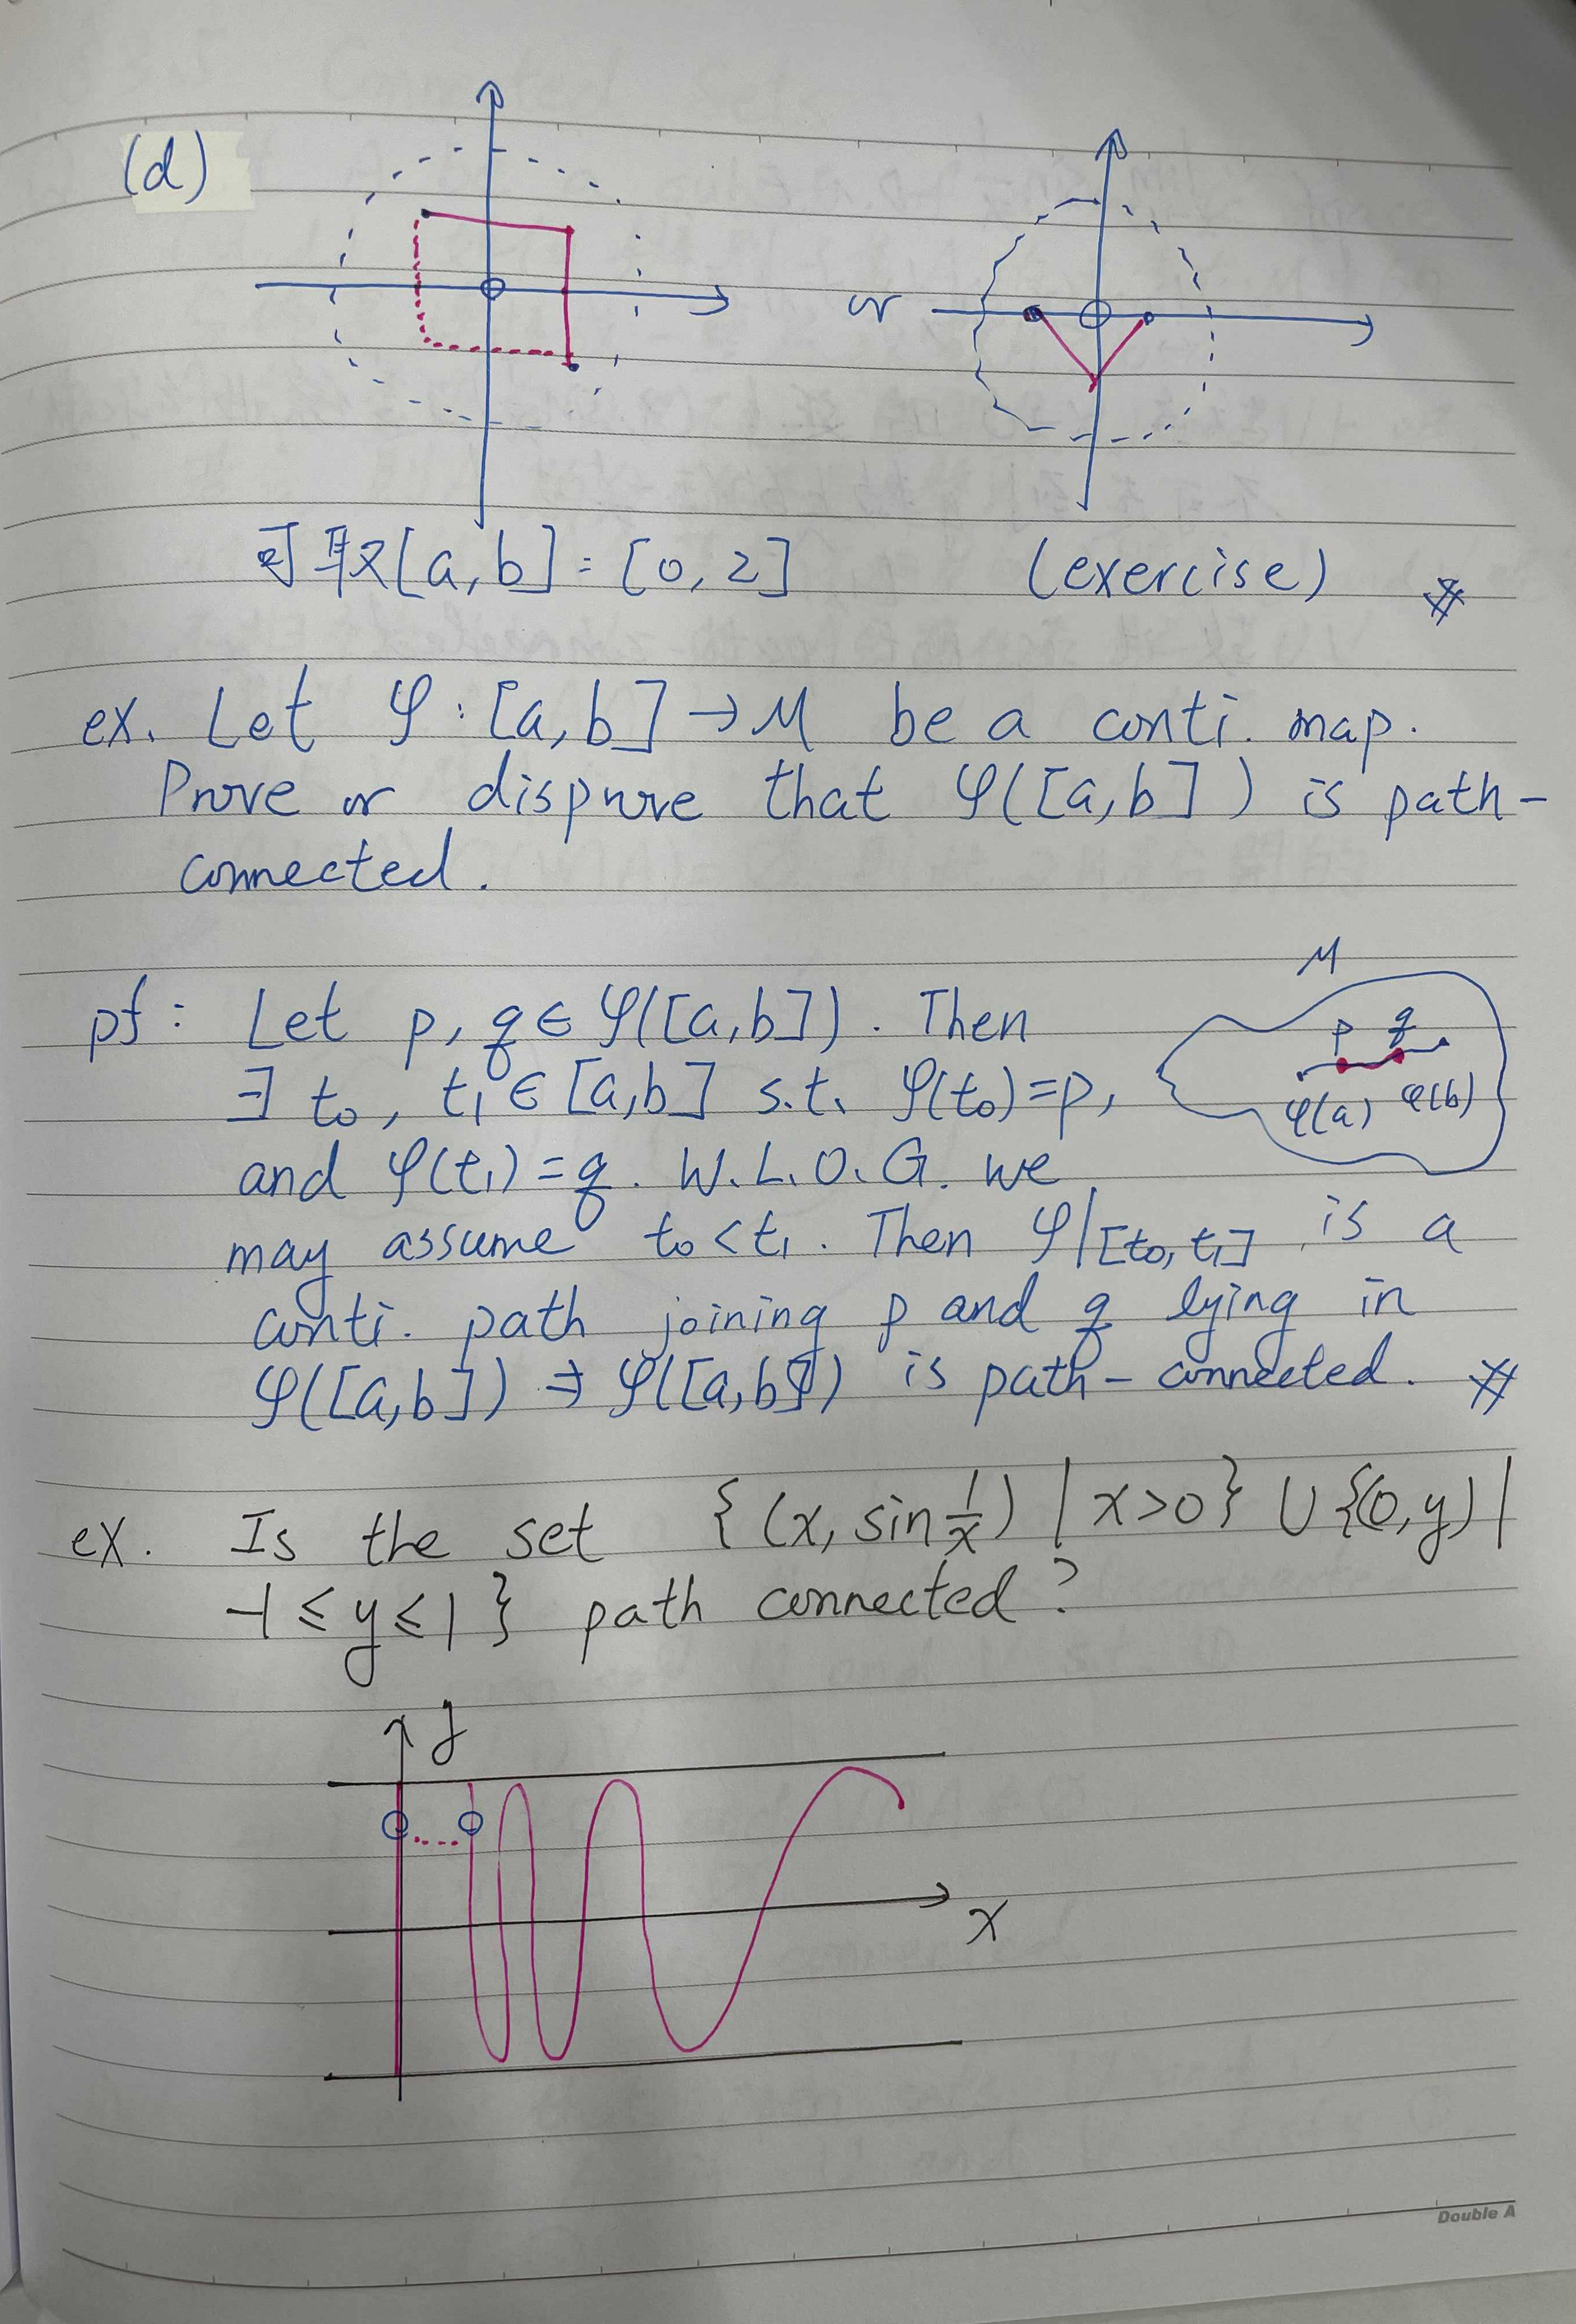 (d)
or
可取[a,b]=[0,2] (exercise) #
ex. Let φ:[a,b]→M be a conti. map.
Prove or disprove that φ([a,b]) is path-
connected.
M
pf: Let p, q ∈ φ([a,b]). Then
p q
∃ t₀, t₁ ∈ [a,b] s.t. φ(t₀)=p,
φ(a) φ(b)
and φ(t₁)=q. W.L.O.G. we
may assume t₀<t₁. Then φ|[t₀,t₁] is a
conti. path joining p and q lying in
φ([a,b]) ⇒ φ([a,b]) is path-connected. #
ex. Is the set {(x, sin 1/x) | x>0} ∪ {(0,y) |
-1≤y≤1} path connected?
y
x
Double A